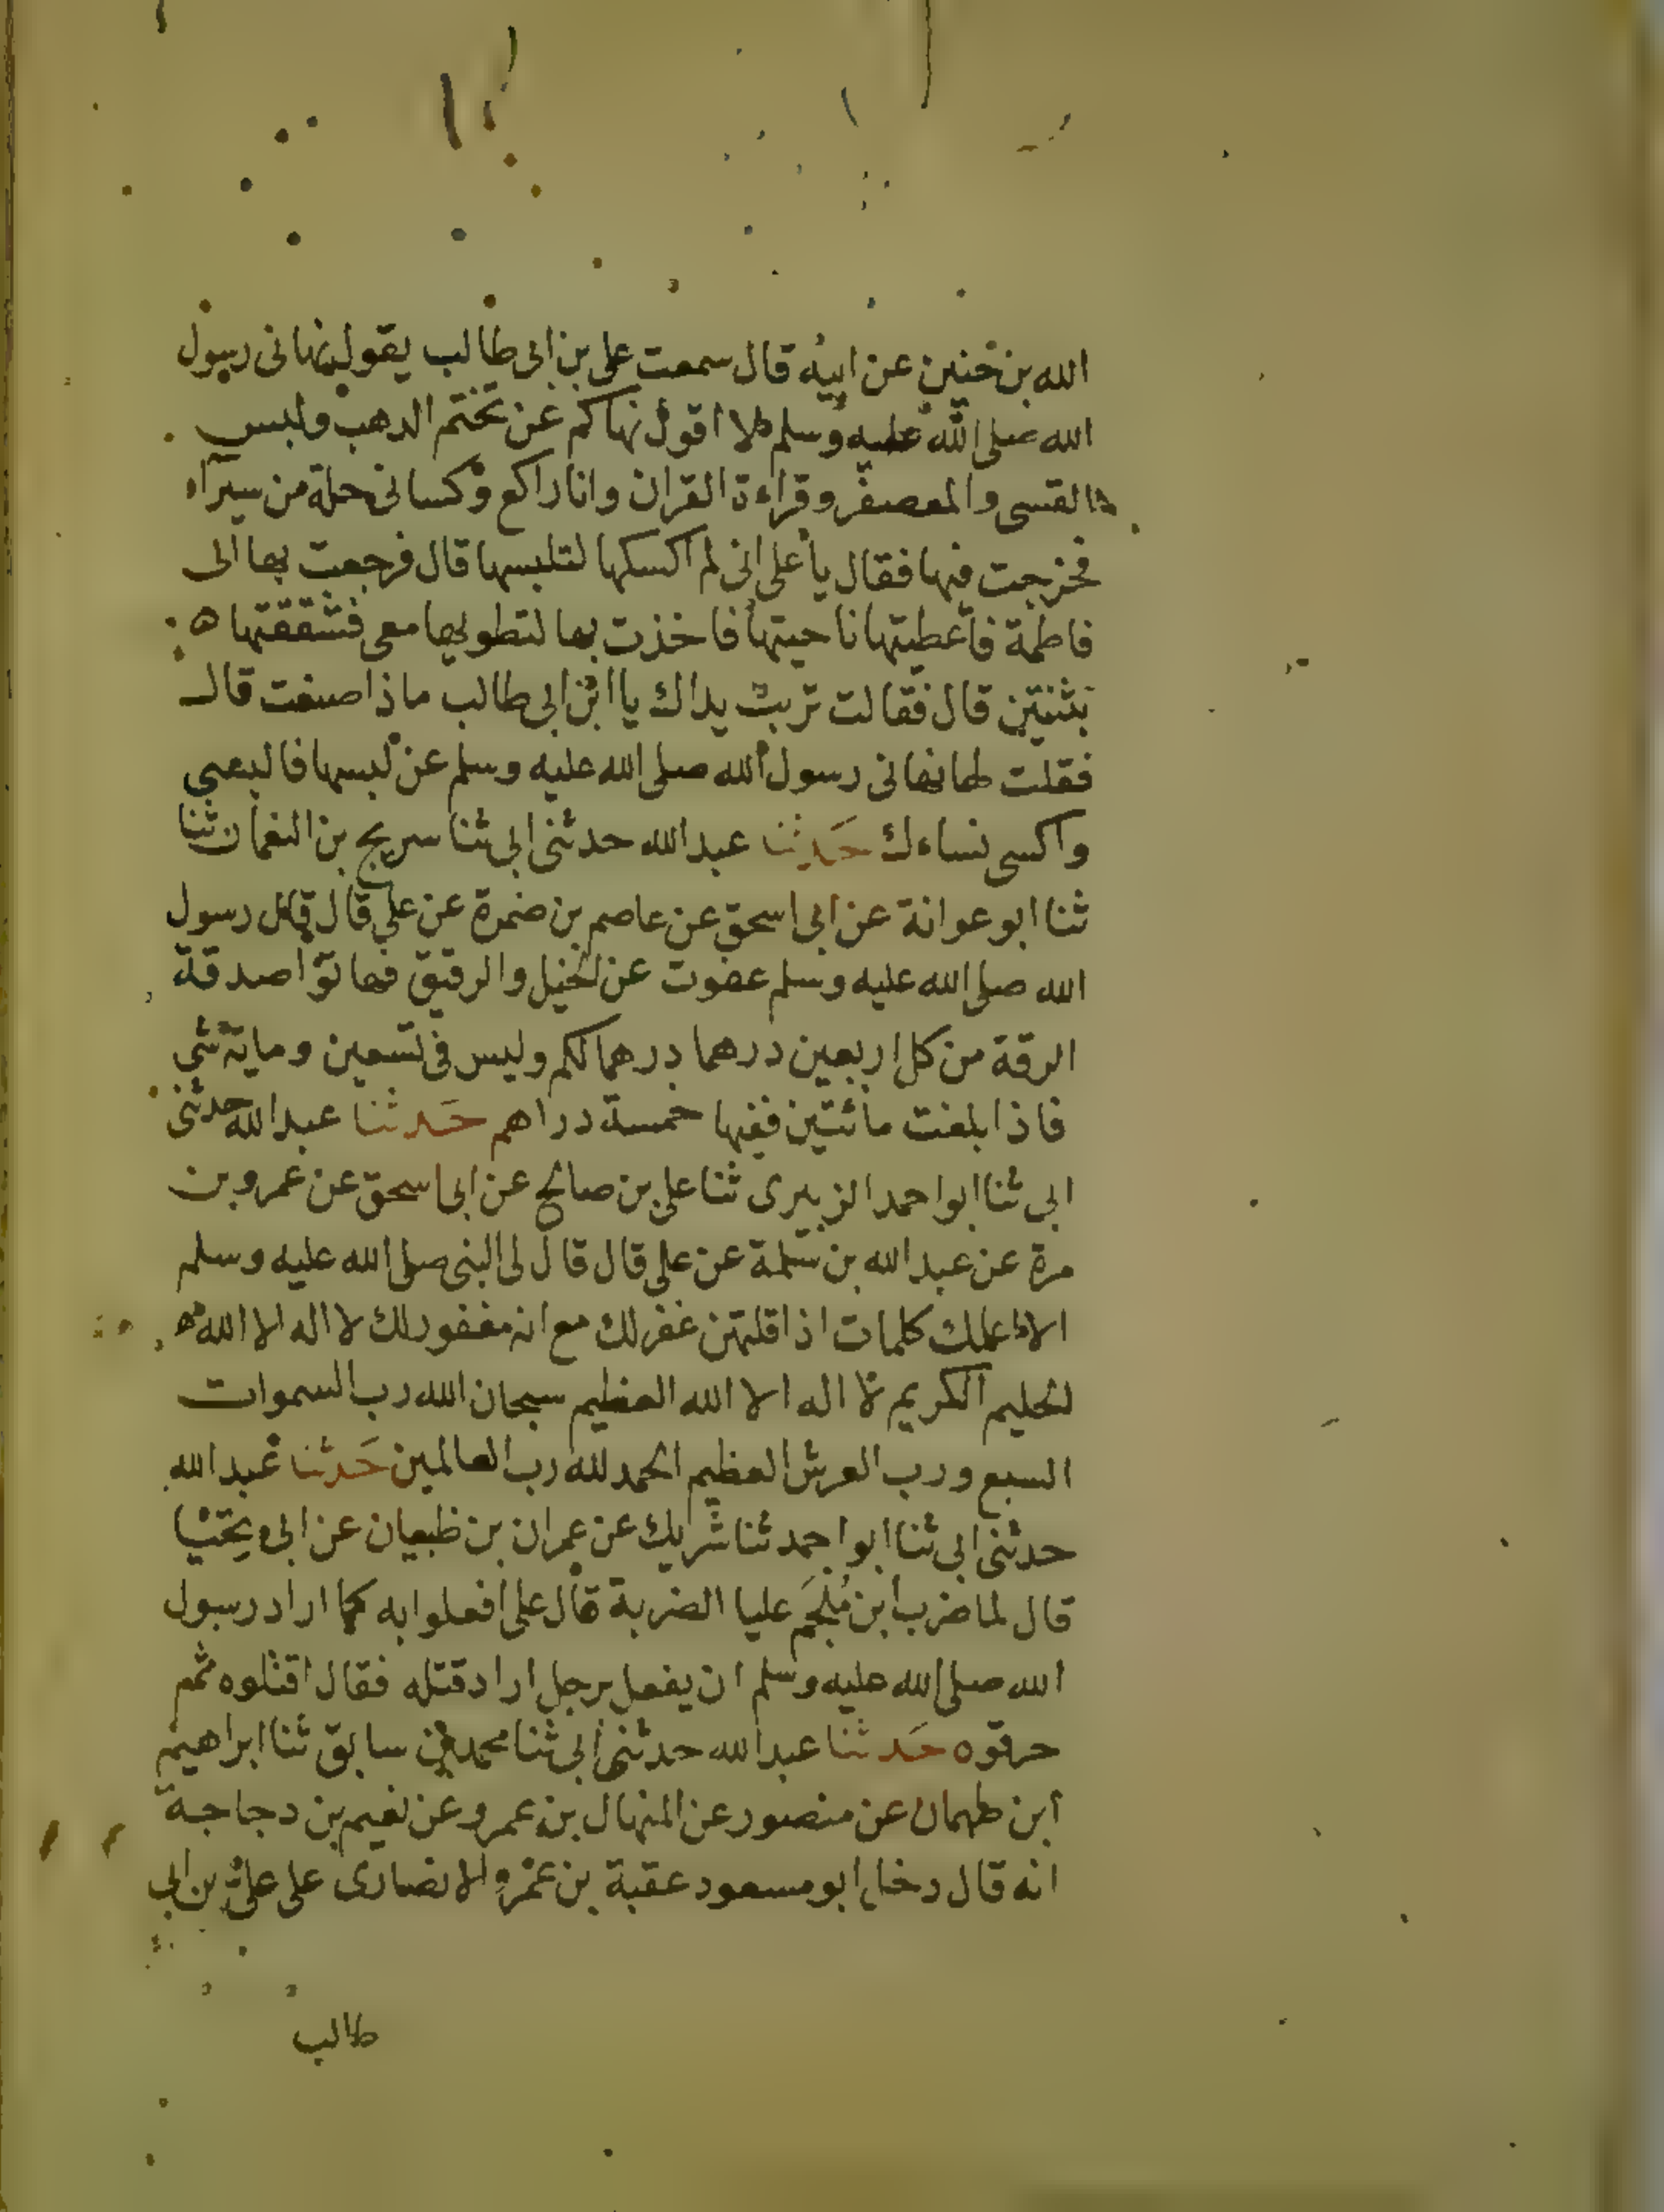 الله بن حنين عن ابيه قال سمعت على بن ابى طالب يقول نهانى رسول
الله صلى الله عليه وسلم لا اقول نهاكم عن تختم الذهب ولبس
القسى والمعصفر وقراءة القران وانا راكع وكسانى حلة من سيراء
فخرجت فيها فقال يا على انى لم اكسكها لتلبسها قال فرجعت بها الى
فاطمة فاعطيتها ناحيتها فاخذت بها لتطويها معى فشققتها
بثنتين قال فقالت تربت يداك يا ابن ابى طالب ماذا صنعت قال
فقلت لها نهانى رسول الله صلى الله عليه وسلم عن لبسها فالبسى
واكسى نساءك حدثنا عبد الله حدثنى ابى ثنا سريج بن النعمان ثنا
ثنا ابو عوانة عن ابى اسحق عن عاصم بن ضمرة عن على قال قال رسول
الله صلى الله عليه وسلم عفوت عن الخيل والرقيق فهاتوا صدقة
الرقة من كل اربعين درهما درهما لكم وليس فى تسعين وماية شى
فاذا بلغت مائتين ففيها خمسة دراهم حدثنا عبد الله حدثنى
ابى ثنا ابو احمد الزبيرى ثنا على بن صالح عن ابى اسحق عن عمرو بن
مرة عن عبد الله بن سلمة عن على قال قال لى النبى صلى الله عليه وسلم
الا اعلمك كلمات اذا قلتهن غفر لك مع انه مغفور لك لا اله الا الله
الحليم الكريم لا اله الا الله العظيم سبحان الله رب السموات
السبع ورب العرش العظيم الحمد لله رب العالمين حدثنا عبد الله
حدثنى ابى ثنا ابو احمد ثنا شريك عن عمران بن ظبيان عن ابى
قال لما ضرب ابن ملجم عليا الضربة قال على افعلوا به كما اراد رسول
الله صلى الله عليه وسلم ان يفعل برجل اراد قتله فقال اقتلوه ثم
حرقوه حدثنا عبد الله حدثنى ابى ثنا محمد بن سابق ثنا ابراهيم
ابن طهمان عن منصور عن المنهال بن عمرو عن نعيم بن دجاجة
انه قال دخل ابو مسعود عقبة بن عمرو الانصارى على على بن ابى
طالب